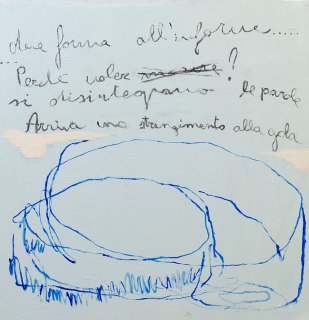 Dare forma all'informe.....
... Perché voler morire ?
si disintegrano le parole
Arriva uno stringimento alla gola